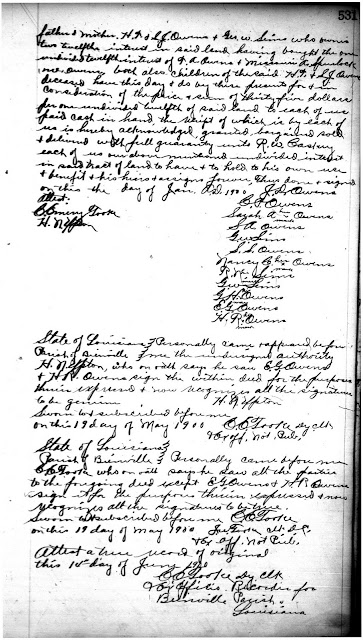 531
father & mother, H.F. & S.J. Owens & Geo. W. Sims who owns
two twelfths interest in said land having bought the one
undivided twelfth interest of F.A. Owens & Missouri
nee Owens both also children of the said H.F. & S.J. Owens
deceased have this day & do by these presents for & in
consideration of the price & sum of thirty five dollars
per one undivided twelfth of said land to each of us
paid cash in hand the receipt of which is by each of
us is hereby acknowledged, granted, bargained sold
& delivered with full guaranty unto R.W.
each of us our above mentioned undivided interest
in said tract of land to have & to hold to his own use
& benefit & his heirs & assigns forever Thus done & signed
on this the day of Jan. A.D. 1900. J.D. Owens
Attest. C.F. Owens
Sarah A. Owens
H. N. Upton S.A. Owens
Geo Sims
S.L. Owens
Nancy Owens
R.H. Sims
Geo Sims
G.H. Owens
E.G. Owens
H.R. Owens
State of Louisiana } Personally came & appeared before
Parish of Bienville } me the undersigned authority
H.N. Upton, who on oath says he saw E.G. Owens
& H.R. Owens sign the within deed for the purposes
therein expressed & now recognizes all the signatures
to be genuine H. N. Upton
Sworn to & subscribed before me
on this 19 day of May 1900 C.C. Tooke dy clk
& Ex off. Not. Pub.
State of Louisiana }
Parish of Bienville } Personally came before me
who on oath says he saw all the parties
to the foregoing deed except E.G. Owens & H.R. Owens
sign it for the purposes therein expressed & now
recognizes all the signatures to be true.
Sworn to & subscribed before me
on this 19 day of May 1900
& Ex Off. Not. Pub.
Attest a true record of original
this 16th day of June 1900
C.C. Tooke dy clk
& Ex Officio Recorder for
Bienville Parish
Louisiana